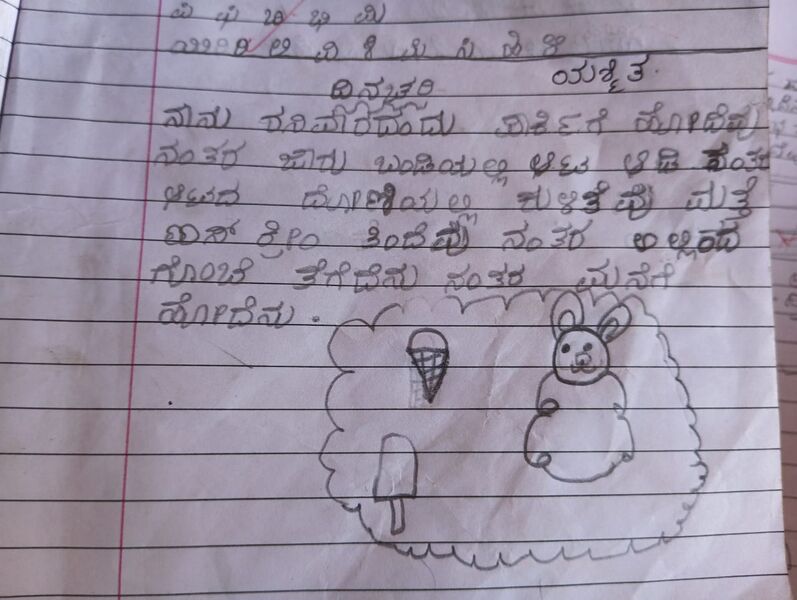 ಪ ಫ ಬ ಭ ಮ
ಯ ರ ಲ ವ ಶ ಷ ಸ ಹ ಳ
ದಿನಚರಿ ಯಶ್ವಿತ.
ನಾನು ಶನಿವಾರದಂದು ಪಾರ್ಕಿಗೆ ಹೋದೆವು
ನಂತರ ಜಾರು ಬಂಡಿಯಲ್ಲಿ ಆಟ ಆಡಿ ನಂತರ
ಆಟದ ದೋಣಿಯಲ್ಲಿ ಕುಳಿತೆವು ಮತ್ತೆ
ಐಸ್ ಕ್ರೀಂ ತಿಂದೆವು ನಂತರ ಅಲ್ಲಿಂದ
ಗೊಂಬೆ ತೆಗೆದೆನು ನಂತರ ಮನೆಗೆ
ಹೋದೆನು.